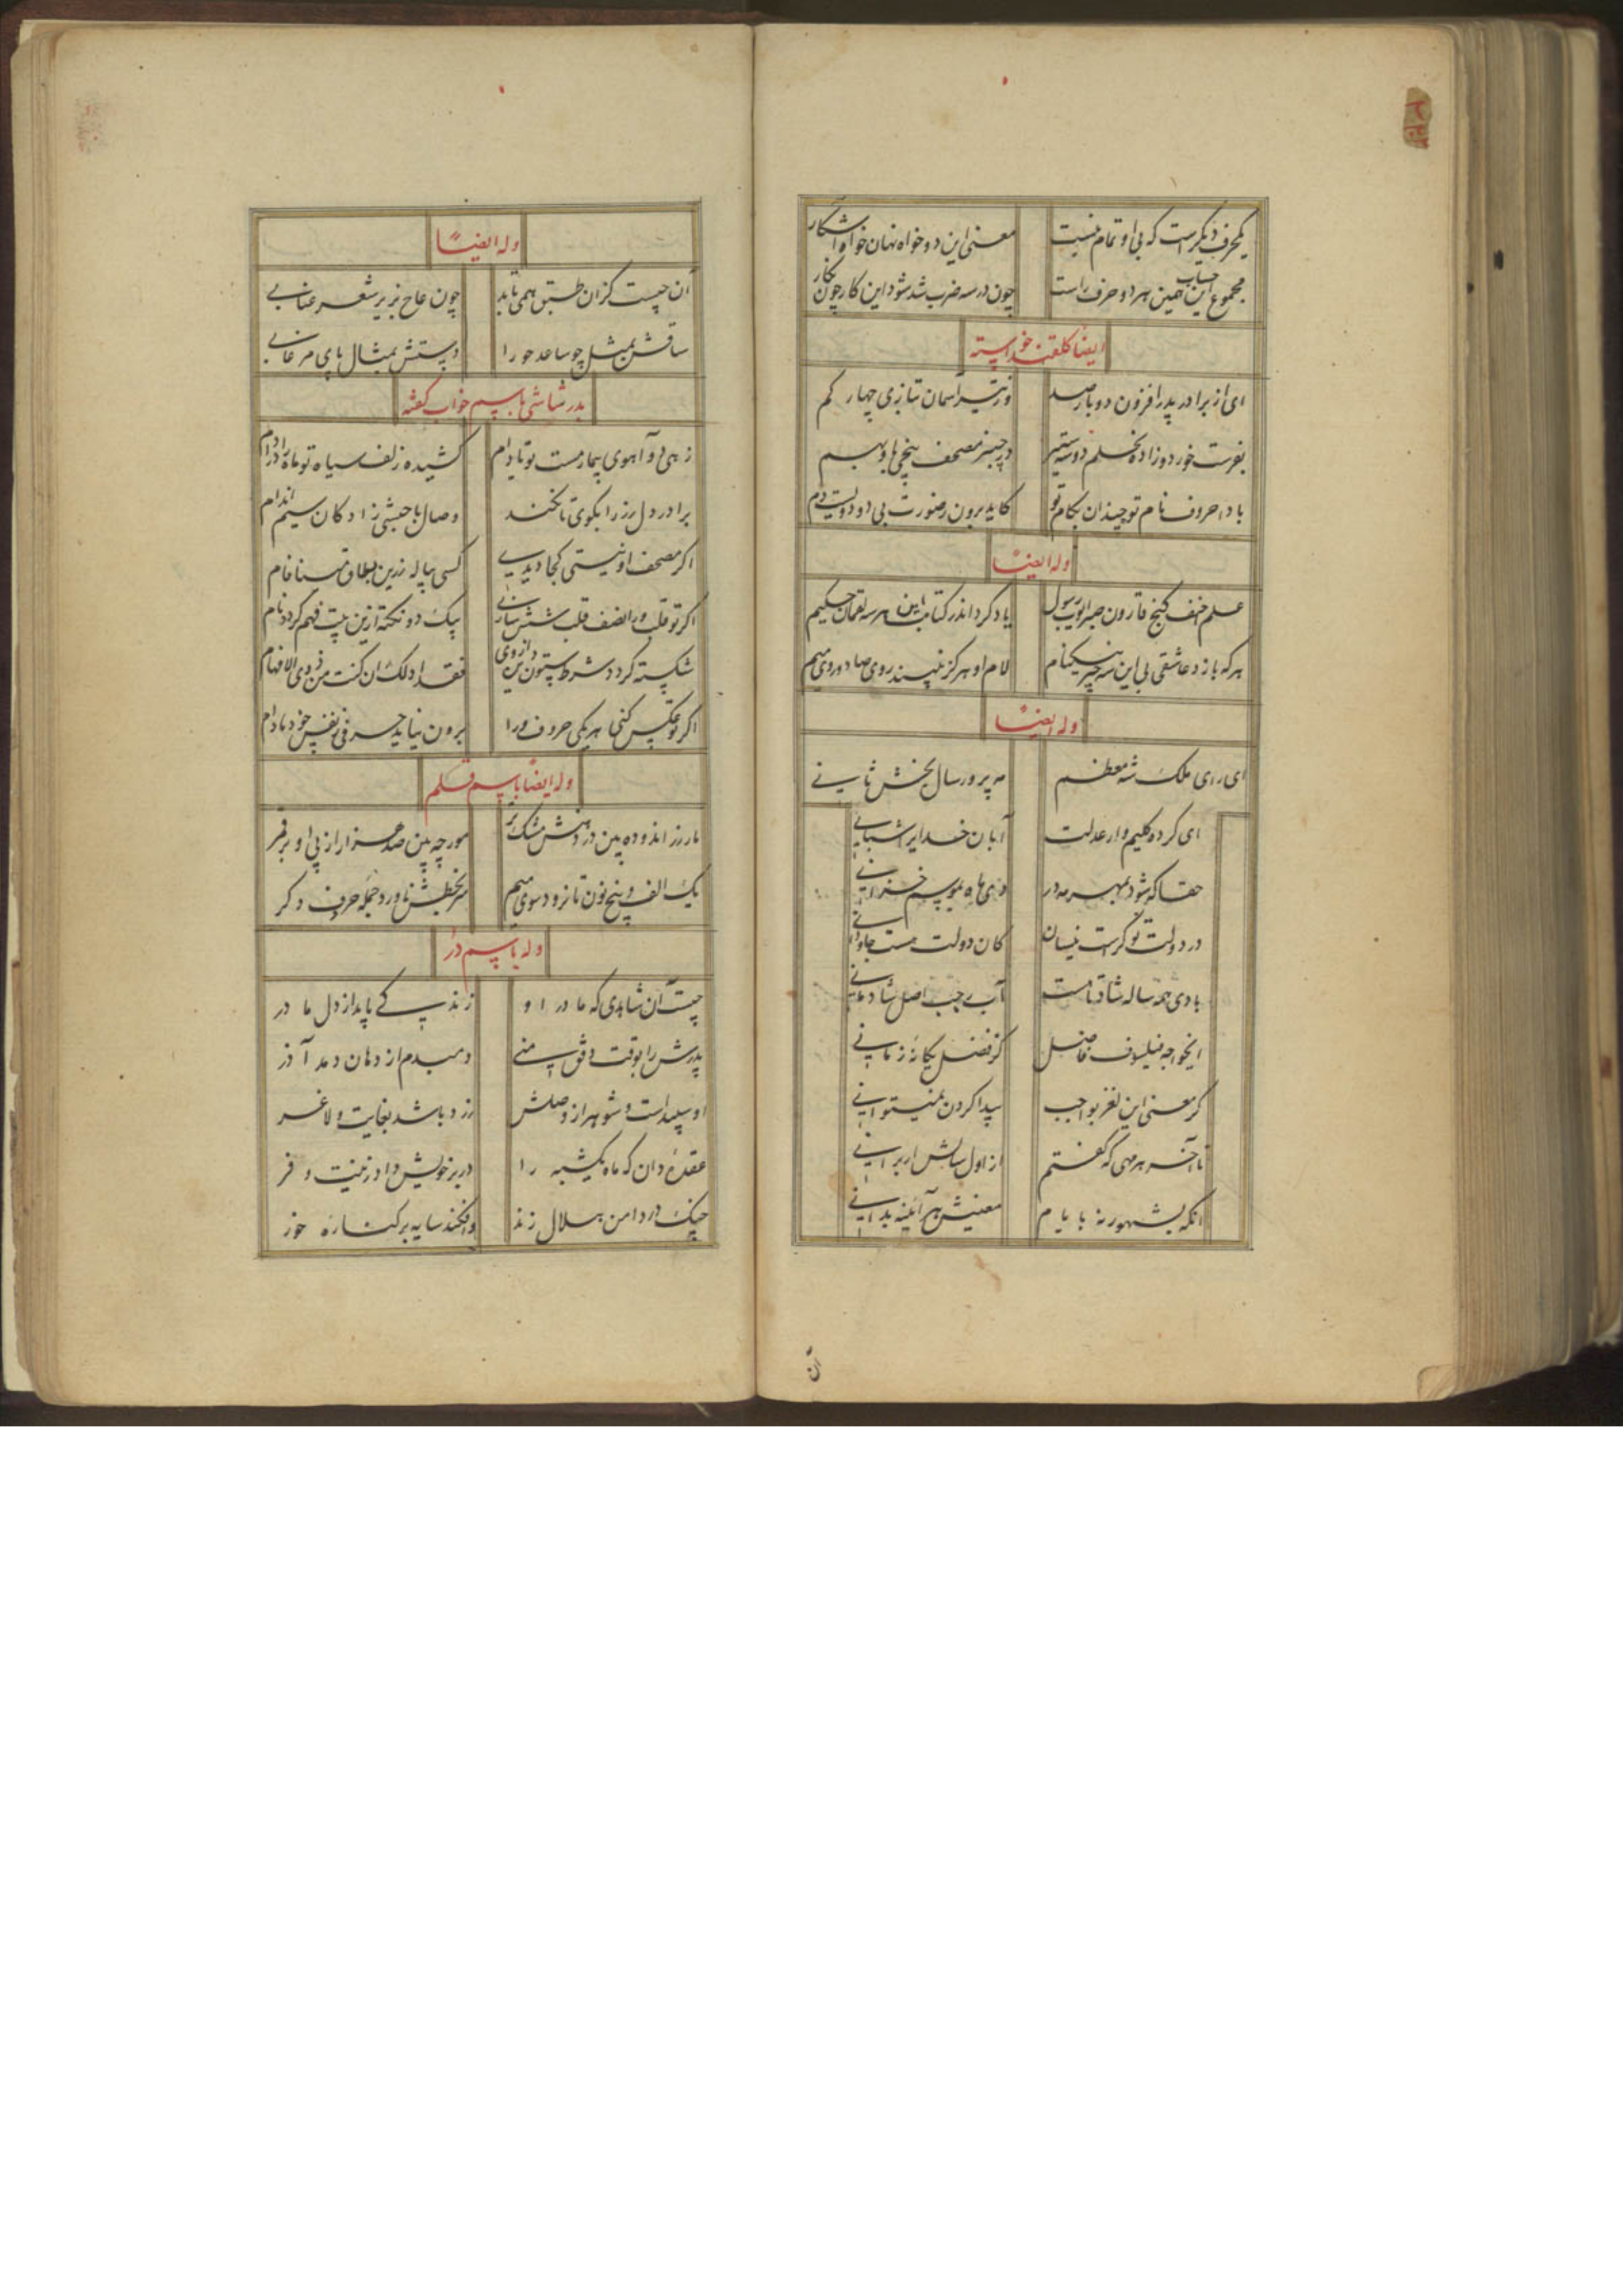 یکحرف دیگرست که بی او تمام نیست
معنی این دو خواه نهان خواه آشکار
مجموع این حساب همین هر دو حرف راست
چون در سه ضرب شد شود این کار چون نگار
ایضا کلقند خواسته
ای از برادر پدر افزون دو بار صد
وز تیر آسمان بتازی چهار کم
در چنبر مصحف پنجی
بادا حروف نام تو چندان بکام تو
کاید برون ز صورت بی دو دویست دم
وله ایضاً
علم خضر گنج قارون صبر ایوب رسول
یاد کرد اندر کتابت این هر سه لقمان حکیم
هر که بازد عاشقی بی این سه چیز نیکنام
لام او هرگز نبیند روی صاد و روی میم
وله ایضاً
ای رای ملک شه معظم
مه پرور سال بخش ثانی
ای کرده کلیم وار عدلت
آبان خدایرا شبانی
حقا که شود بمهر مه در
دی ماه بموسم خزانی
در دولت تو کراست نیسان
کان دولت هست جاودانی
بادی همه ساله شاد تا هست
آب رجب اصل شادمانی
ایخواجه فیلسوف فاضل
کز فضل یگانه زمانی
گر معنی این لغز بواجب
پیدا کردن نمیتوانی
تا آخر هر مهی که گفتم
از اول سالش ار برانی
آنگه بشهور نه بایام
معنیش هر آئینه بدانی
آن
وله ایضاً
آن چیست کزان طبق همی تابد
چون عاج بزیر شعر عنابی
ساقش بمثل چو ساعد حورا
دستش بمثال پای مرغابی
بدر شاشی باسم خواب گفته
زهی دو آهوی بیمار مست تو تا دام
کشیده زلف سیاه تو ماه را در دام
برادر دل رز را بگوی تا نکند
وصال با حبشی زادگان سیم اندام
اگر مصحف او نیستی کجا دیدی
کسی پیاله زرین بطاق مینا فام
اگر تو قلب ورا نصف قلب شش سازی
بیک دو نکته ازین بیت فهم گردد نام
شکسته گردد شرط ستون دین از وی
فقد ادلک ان کنت من ذوی الافهام
اگر تو عکس کنی هر یکی حروف ورا
برون نیاید حرفی ز نفس خود مادام
وله ایضاً باسم قلم
مار زر اندوده بین در دهنش مشک تر
مورچه بین صد هزار از پی او بر قمر
یک الف و پنج نون تا نرود سوی میم
سر بخطش ناورد جمله حروف دگر
وله باسم در
چیست آن شاهدی که مادر او
زنده کی یابد از دل مادر
پدرش را بوقت دفق منی
دمبدم از دهان دمد آذر
او سپیداست و شوهر از وصلش
زرد باشد بغایت و لاغر
عقده دان که ماه یکشبه را
در بر خویش داد زینت و فر
چنگ در دامن هلال زند
وافکند سایه بر کناره خور